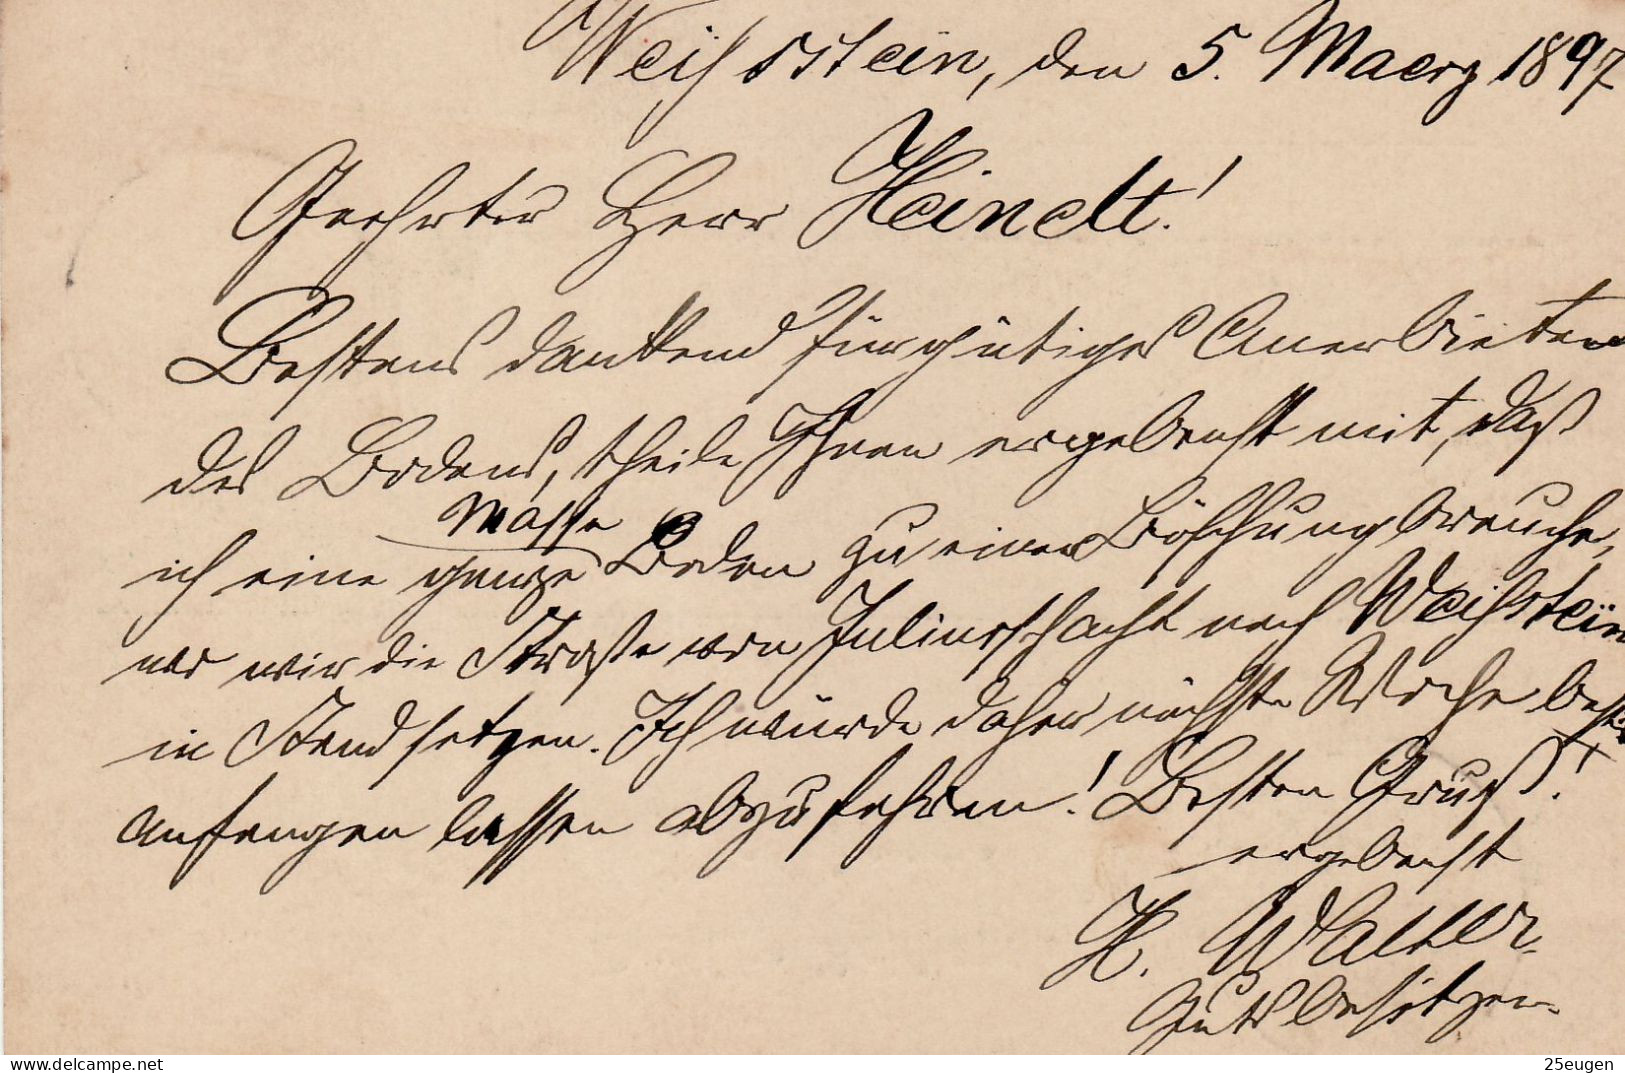 Weißstein, den 5. Maerz 1897
Geehrter Herr Heinelt!
Bestens dankend für gütiges Anerbieten
des Bodens, theile Ihnen ergebenst mit, daß
Masse
ich eine ganze Boden zu einer Böschung brauche,
wo wir die Straße von Juliusschacht nach Weißstein
in Stand setzen. Ich würde daher nächste Woche
anfangen lassen abzufahren! Besten Gruß!
ergebenst
H. Walter
Gutsbesitzer.
delcampe.net
25eugen